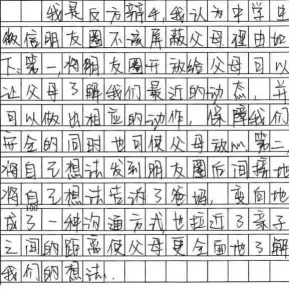 我是反方辩手,我认为中学生
微信朋友圈不该屏蔽父母理由如
下:第一,将朋友圈开放给父母可以
让父母了解我们最近的动态,并
可以做出相应的动作,保障我们
安全的同时也可使父母放心。第二,
将自己想法发到朋友圈后间接地
将自己想法告诉了爸妈,变向地
成了一种沟通方式也拉近了亲子
100
之间的距离使父母更全面地了解
我们的想法.